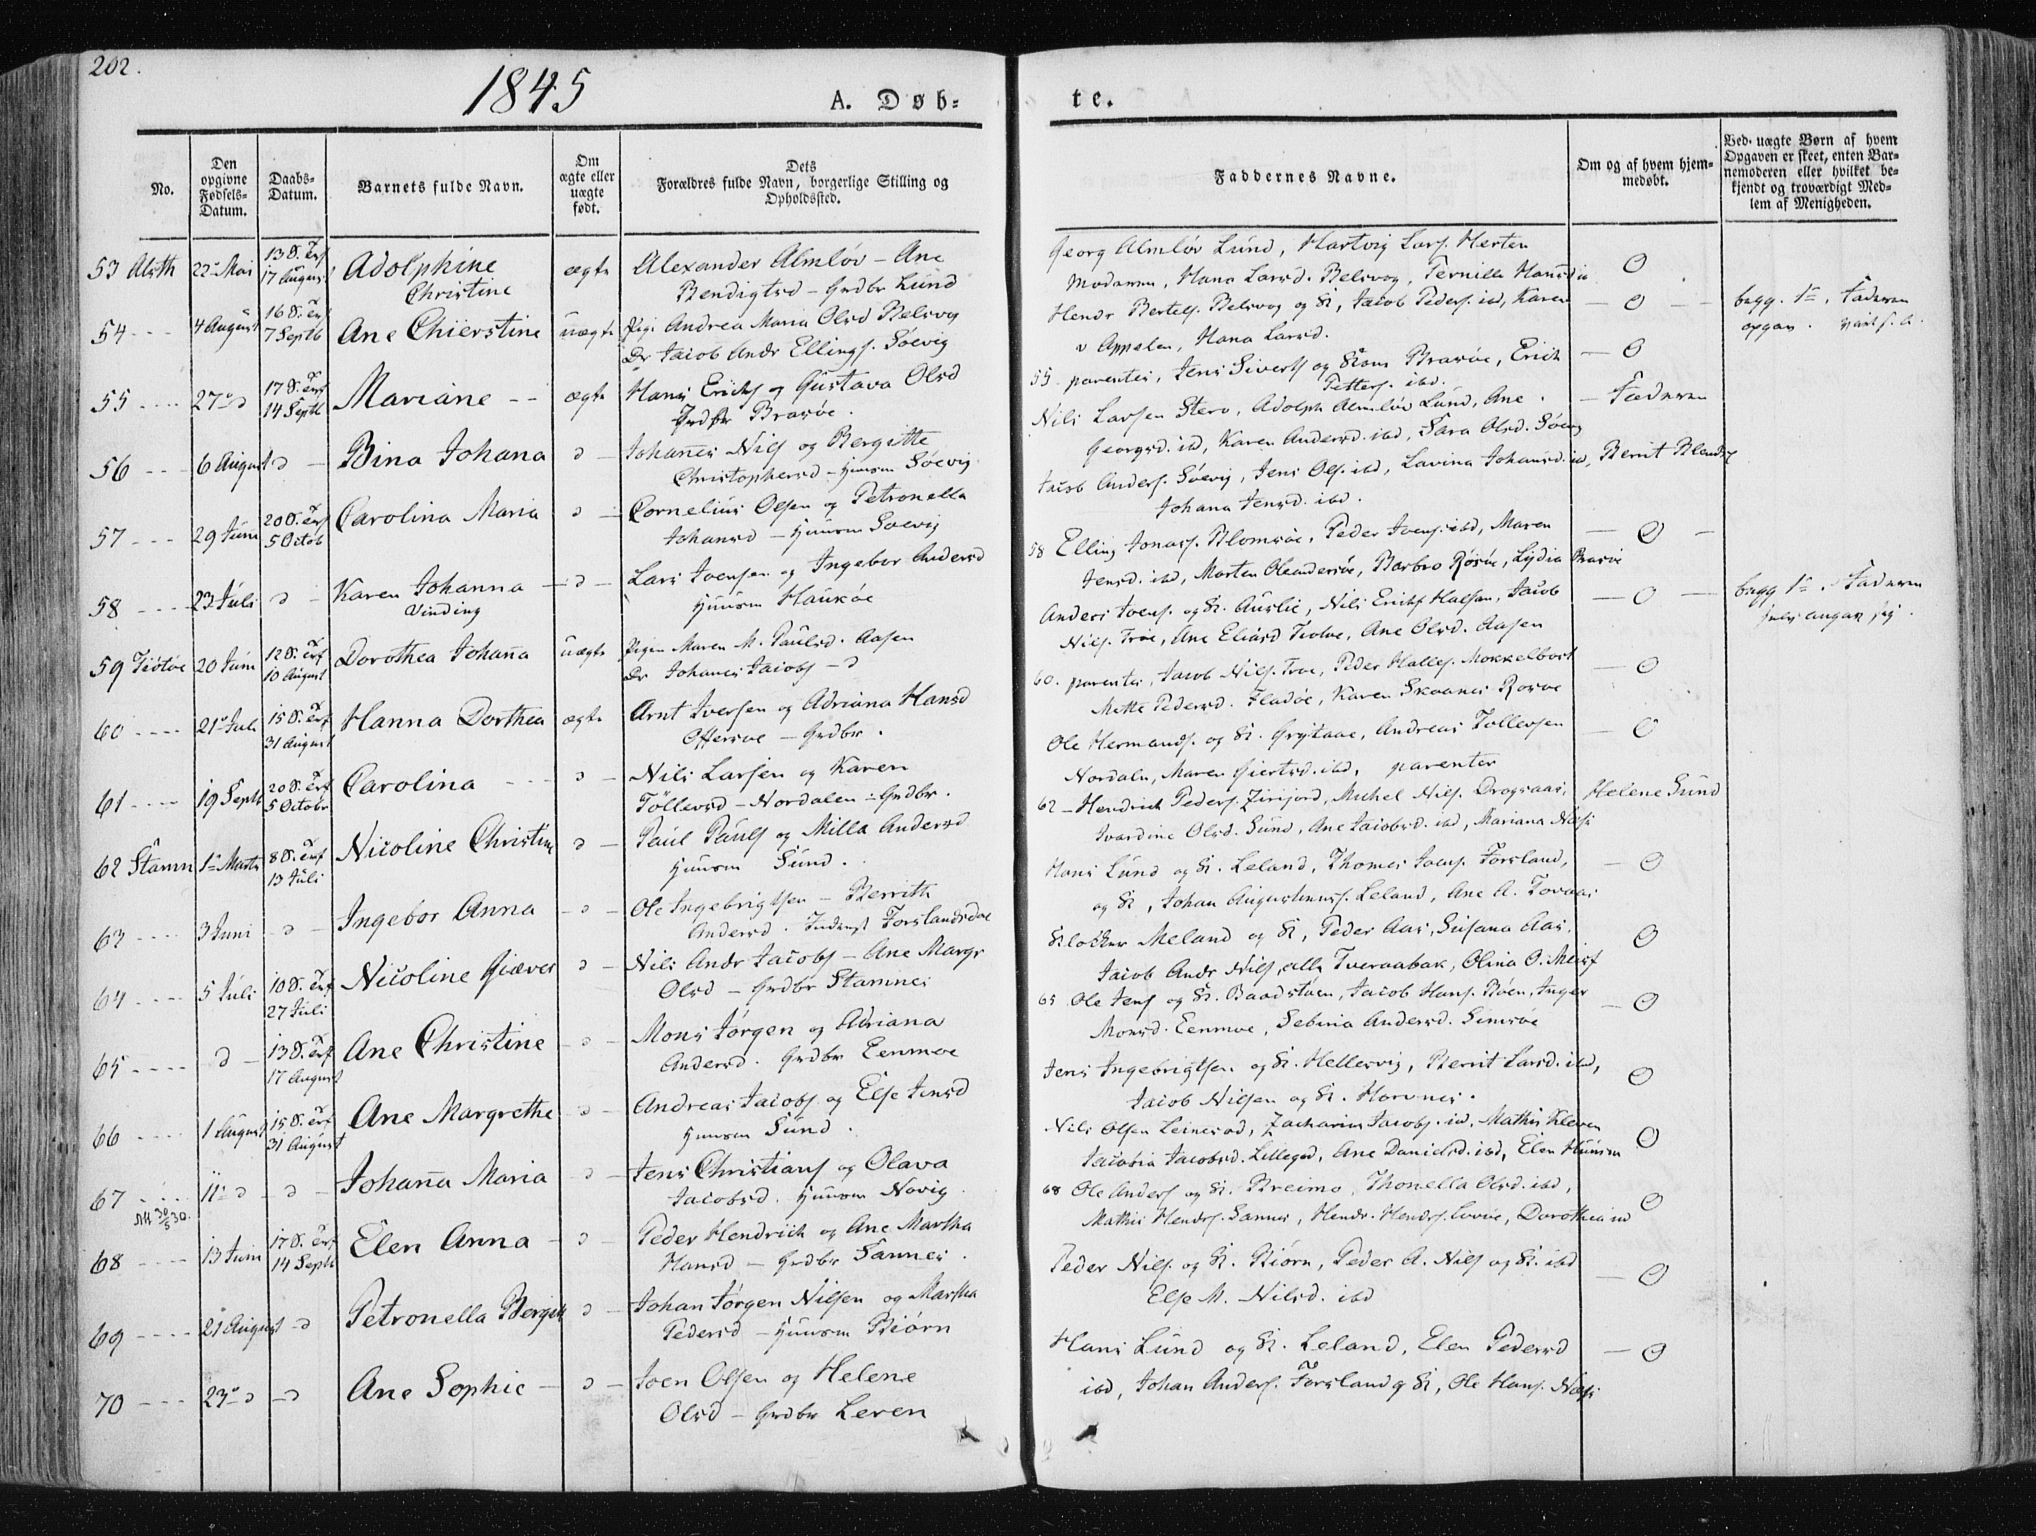 202.
1845
A. Døb-
te.
No.
Den opgivne Fødsels-Datum.
Daabs-Datum.
Barnets fulde Navn.
Om ægte eller uægte født.
Dets Forældres fulde Navn, borgerlige Stilling og Opholdssted.
Faddernes Navne.
Om og af hvem hjem-medøbt.
Ved uægte Børn af hvem Opgaven er skeet, enten Bar-nemoderen eller hvilket be-kjendt og troværdigt Med-lem af Menigheden.
53 Alsth 22 Mai 13 S. Trf 17 August Adolphine Christine ægte Alexander Almløv - Ane
Bendigtsd - Grdbr Lund
Georg Almløv Lund, Hartvig Lars. Herten
Moderen, Hana Larsd. Belsvog, Pernilla Hansd
0
54 4 August 16 S. Trf 7 Septb Ane Chierstine uægte Pige Andrea Maria Olsd Belsvog
Jacob Andr Ellings. Søevig
Hendr Bertels. Belsvog og K, Jacob Peders. ibd, Karen
Appelen, Hana Larsd.
0
begg. 1ste, Faderen
opgav
55 27 d 17 S. Trf 14 Septb Mariane ægte Hans Erichs og Gustava Olsd
Grdbr Brasøe.
55. parentes, Jens Siverts og Brasøe, Erich
Petters. ibd.
0
56 6 August d Bina Johana d Johanes Nils og Bergitte
Christophersd - Huusm Søevig
Nils Larsen Stero, Adolph Almløv Lund, Ane
Georgsd. ibd, Karen Andersd. ibd, Sara Olsd. Søevig
Faderen
57 29 Juni 20 S. Trf 5 Octob Carolina Maria d Cornelius Olsen og Petronella
Johansd - Huusm Søevig
Jacob Anders. Søevig, Jens Ols. ibd, Lavina Johansd. ibd, Berit
Johana Jensd. ibd.
58 23 Juli d Karen Johanna Vinding d Lars Ivensen og Ingebor Andersd
Huusm Haukøe
58 Elling Jonas. Blomsøe, Peder Ivens. ibd, Maren
Jensd. ibd, Morten Oleandersøe, Barbro Rosøe, Lydia Brasøe
0
59 Tiøtøe 20 Juni 12 S. Trf 10 August Dorothea Johana uægte Pigen Maren M. Paulsd. Aasen
Johanes Jacobs - d
Anders Ivens. og K. Auslie, Nils Erichs Halsan, Jacob
Nils. Trøe, Ane Eliasd Tvolve, Ane Olsd. Aasen
0
begg 1ste. Faderen
selv angav sig.
60 21 Juli 15 S. Trf 31 August Hanna Dorthea ægte Arnt Iversen og Adriana Hansd
Offersøe - Grdbr.
60. parentes, Jacob Nils. Troe, Peder Halles. Mokkelbost
Mette Pedersd. Fladøe, Karen Skaanes Rosøe
0
61 19 Septb 20 S. Trf 5 Octobr Carolina d Nils Larsen og Karen
Tøllevsd - Nordalen - Grdbr.
Ole Hermands. og K. Grytaae, Andreas Tollevsen
Nordaln, Maren Giertsd. ibd, parentes
0
62 Stamn 1 Marts 8 S. Trf 13 Juli Nicoline Christine d Paul Pauls og Milla Andersd
Huusm Sund.
62 - Hendrich Peders. Zirijord, Michel Nils. Dragsaas,
Ivardine Olsd. Sund, Ane Jacobsd. ibd, Mariana
Helene Sund
63 3 Juni d Ingebor Anna d Ole Ingebrigtsen - Berrith
Andersd. Inderst Forslandsdae
Hans Lund og K. Leland, Thomes Forsland,
og K, Johan Augustinus. Leland, Ane A. Tovaas
0
64 5 Juli 10 S. Trf 27 Juli Nicoline Giæver d Nils Andr Jacobs - Ane Margr
Olsd - Grdbr Stamnes
Klocker Meland og K, Peder Aas, Susana Aas,
Jacob Andr Nils, Tveraabak, Olina O.
0
65 d 13 S. Trf 17 August Ane Christine d Mons Jørgen og Adriana
Andersd. Grdbr Eenmoe
65 Ole Jens og K. Baadstøen, Jacob Hans. Bøen, Inger
Monsd. Eenmoe, Sebina Andersd. Simsøe
0
66 1 August 15 S. Trf 31 August Ane Margrethe d Andreas Jacobs og Else Jensd
Huusm Sund.
Jens Ingebrigtsen og K. Hellesvig, Berrit Larsd. ibd,
Jacob Nilsen og K. Horvnes.
0
67 11 d d Johana Maria d Jens Christians og Olava
Jacobsd. Huusm Novig
Nils Olsen Leinesod, Zacharias Jacobs. ibd, Mathis Kleven
Jacobia Jacobsd. Lillegrd, Ane Danielsd. ibd, Elen
0
68 13 Juni 17 S. Trf 14 Septb Elen Anna d Peder Hendrich og Ane Martha
Hansd - Grdbr Sannes.
68 Ole Anders og K. Breimo, Thonella Olsd. ibd,
Mathis Hendrs. Sannes, Hendr. Hendrs. , Dorothea ibd
0
69 21 August d Petronella Bergette d Johan Jørgen Nilsen og Martha
Pedersd - Huusm Biørn
Peder Nils. og K. Biørn, Peder A. Nils og K. ibd
Else M. Nilsd. ibd
0
70 23 d d Ane Sophie d Joen Olsen og Helene
Olsd - Grdbr Leren
Hans Lund og K. Leland, Elen Pedersd
ibd, Johan Anders. Forsland og K, Ole Hans.
0